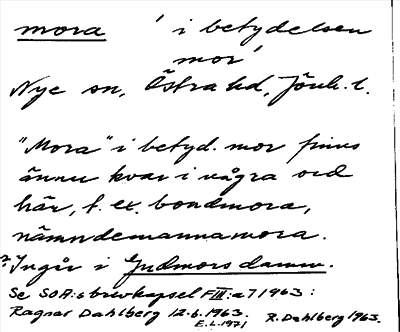 mora ' i betydelsen
mor'
Nye sn, Östra hd, Jönk. l.
"Mora" i betyd. mor finns
ännu kvar i några ord
här, t. ex. bondmora,
nämndemannamora.
? Ingår i Gudmors damm.
Se SOA:s brevkapsel F III:a7 1963:
Ragnar Dahlberg 12.6.1963.
E.L. 1971
R. Dahlberg 1963.